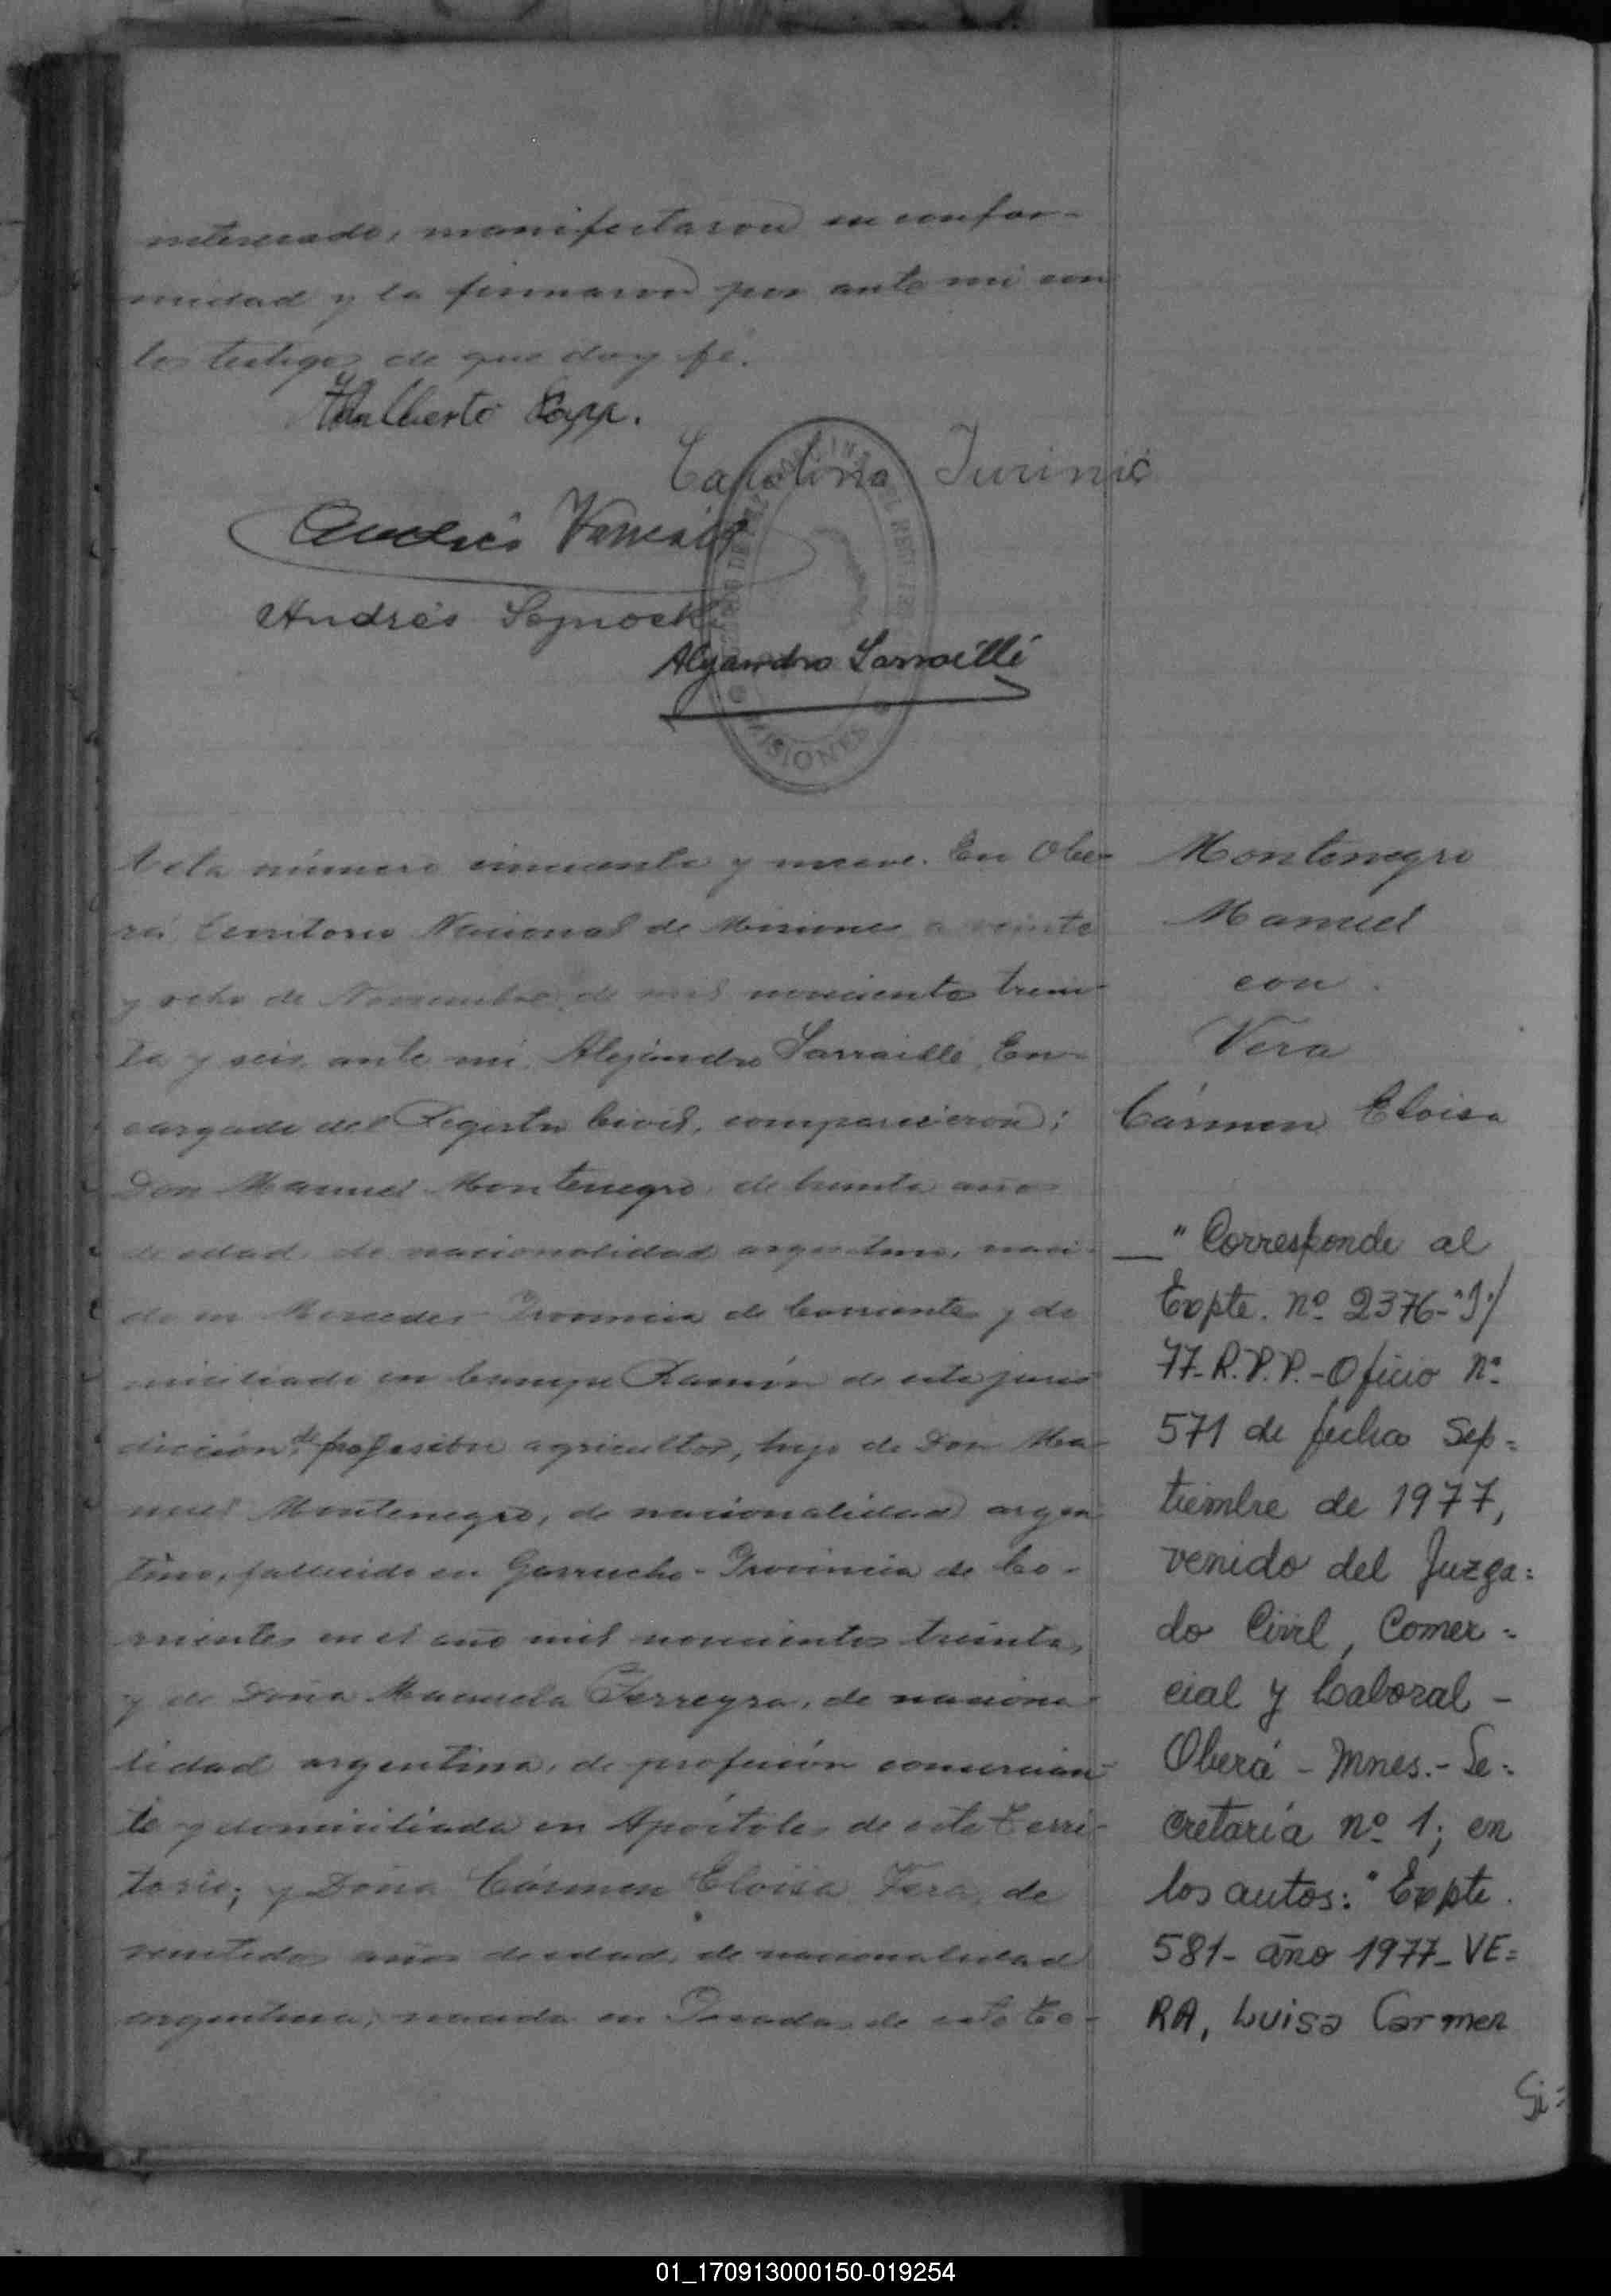 interesado, manifestaron su confor-
midad y la firmaron por ante mi con
los testigos de que doy fé.
Adalberto
Catalina Jurinic
Andrés
Andrés
Alejandro Sarraillé
MISIONES
Acta número cincuenta y nueve. En Obe-
rá, Territorio Nacional de Misiones a veinte
y ocho de Noviembre de mil novecientos trein-
ta y seis, ante mi, Alejandro Sarraillé, En-
cargado del Registro Civil, comparecieron:
Don Manuel Montenegro, de treinta años
de edad, de nacionalidad argentino, naci-
do en Mercedes - Provincia de Corrientes y do
miciliado en Campo Ramón de esta juris
dicción, de profesión agricultor, hijo de Don Ma-
nuel Montenegro, de nacionalidad argen
tino, fallecido en Garruchos - Provincia de Co-
rrientes en el año mil novecientos treinta,
y de Doña Manuela Ferreyra, de naciona-
lidad argentina, de profesión comercian-
te y domiciliada en Apóstoles de este Terri-
torio; y Doña Cármen Eloisa Vera, de
veintidos años de edad, de nacionalidad
argentina, nacida en Posadas de este Te-
Montenegro
Manuel
con
Vera
Cármen Eloisa
"Corresponde al
Expte. nº 2376-"J"/
77-R.P.P.-Oficio Nº
571 de fecha Sep=
tiembre de 1977,
venido del Juzga=
do Civil, Comer=
cial y Laboral -
Oberá - Mnes.- Se=
cretaría nº 1; en
los autos: "Expte.
581- año 1977- VE=
RA, Luisa Carmen
Si=
01_170913000150-019254